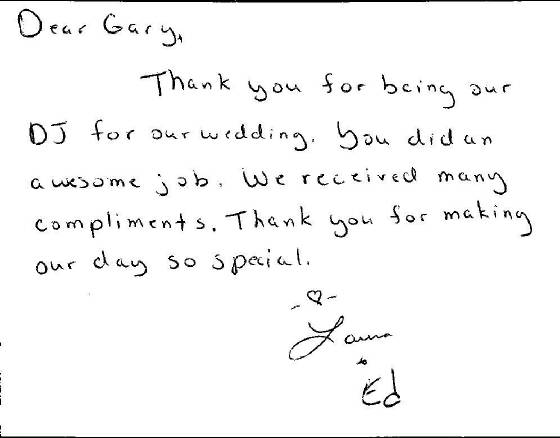 Dear Gary,
Thank you for being our
DJ for our wedding. You did an
awesome job. We received many
compliments. Thank you for making
our day so special.
-♡-
Laura
&
Ed